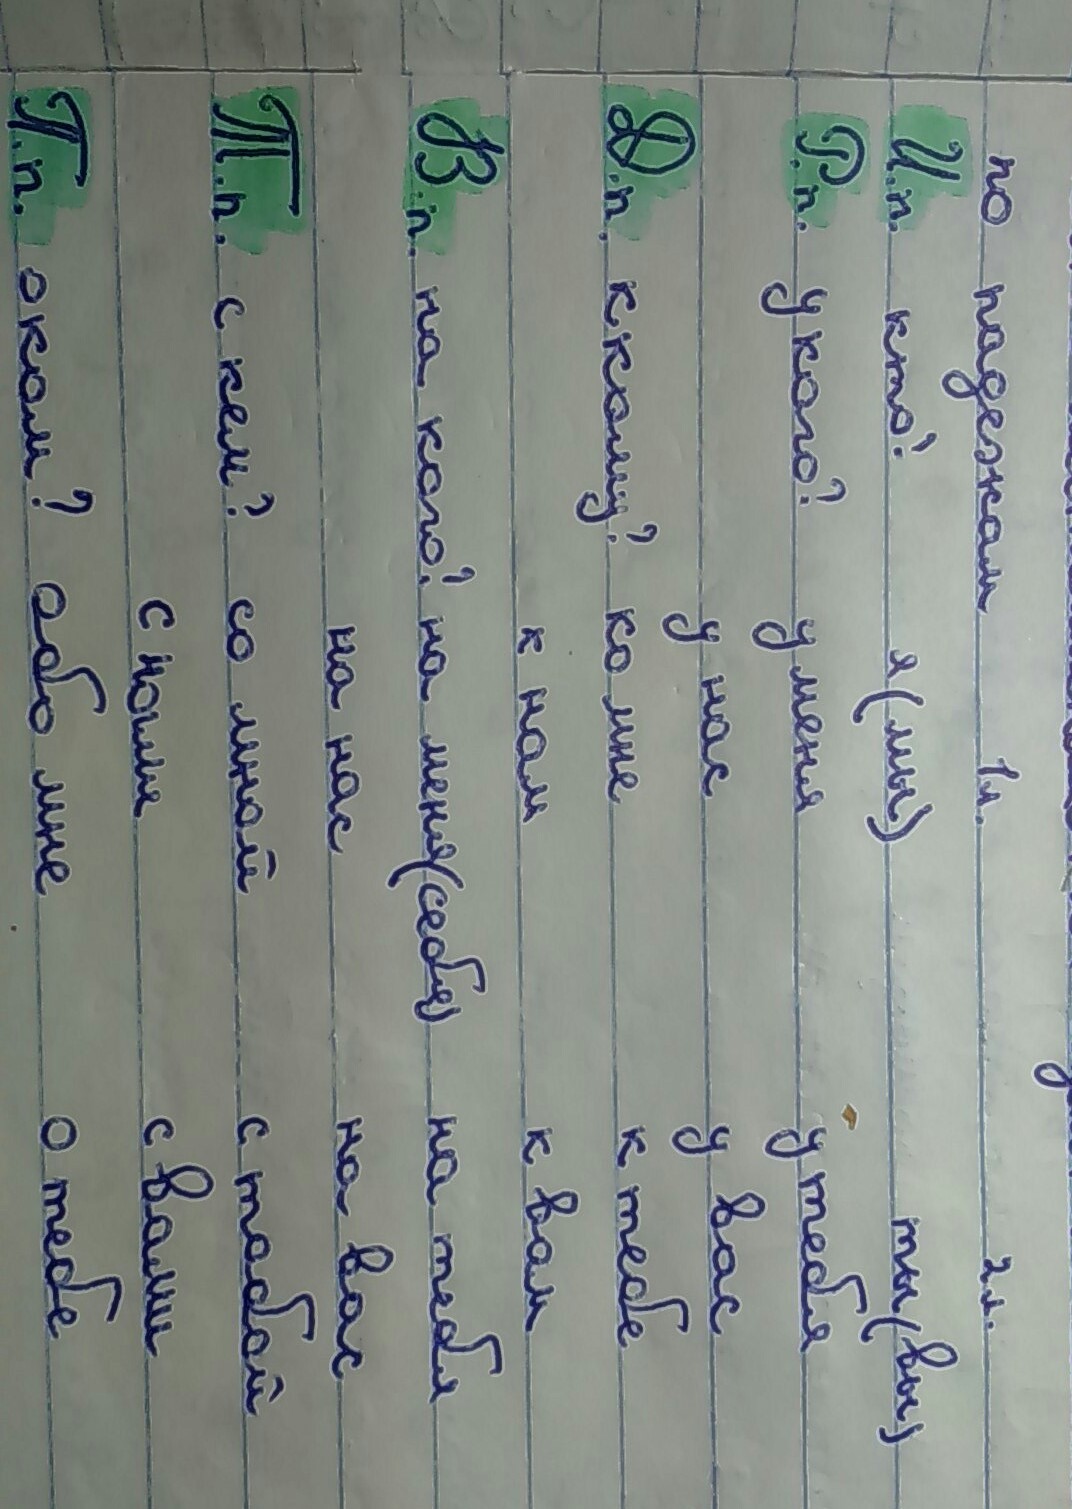 по падежам 1л. 2л.
И.п. кто? я(мы) ты(вы)
Р.п. у кого? у меня у тебя
у нас у вас
Д.п. к кому? ко мне к тебе
к нам к вам
В.п. на кого? на меня(себя) на тебя
на нас на вас
Т.п. с кем? со мной с тобой
с нами с вами
П.п. о ком? обо мне о тебе